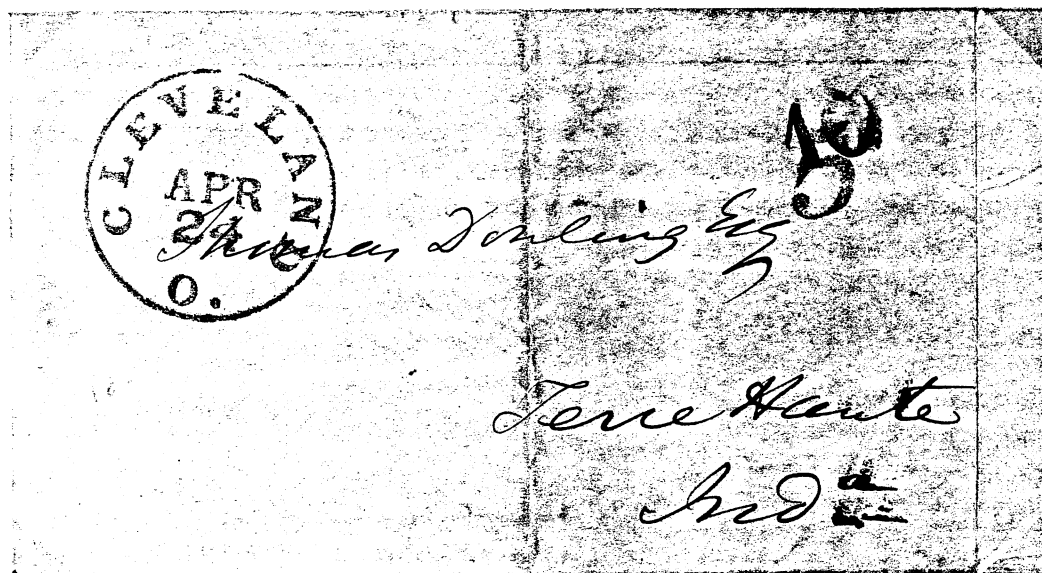 CLEVELAND
O.
APR
Thomas Dowling Esq
Terre Haute
Ind a